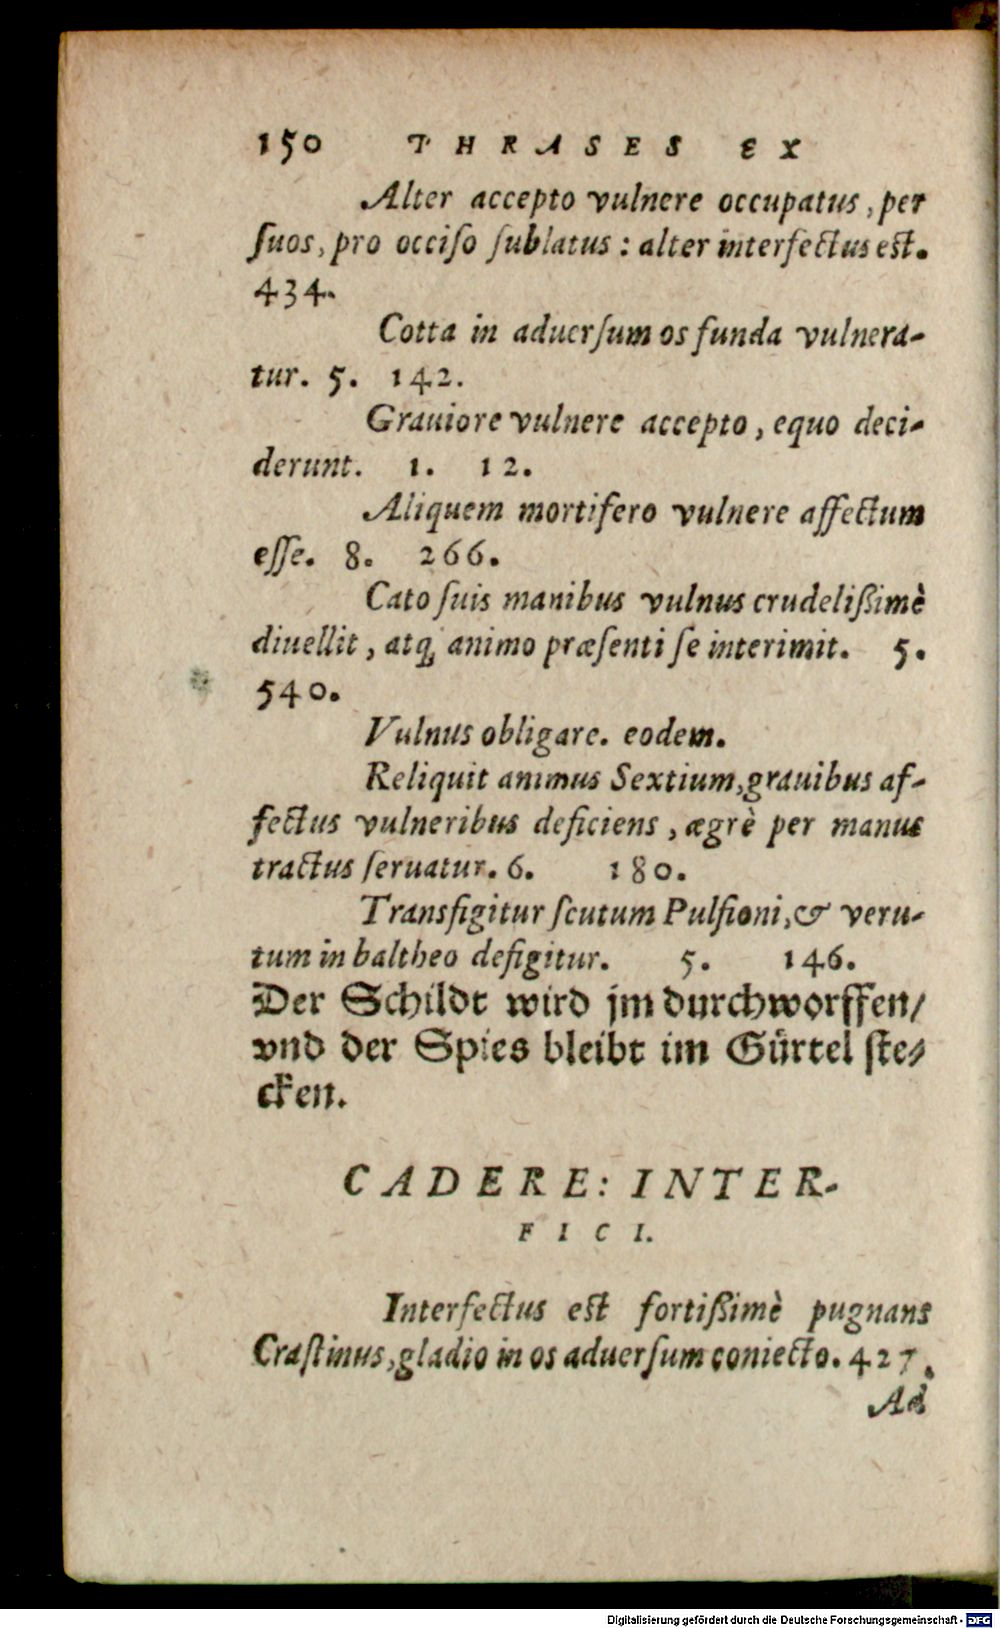 150 THRASES EX
Alter accepto vulnere occupatus, per
ſuos, pro occiſo ſublatus: alter interfectus eſt.
434.
Cotta in aduerſum os funda vulnera-
tur. 5. 142.
Grauiore vulnere accepto, equo deci-
derunt. 1. 12.
Aliquem mortifero vulnere affectum
eſſe. 8. 266.
Cato ſuis manibus vulnus crudelißimè
diuellit, atq; animo præſenti ſe interimit. 5.
540.
Vulnus obligare. eodem.
Reliquit animus Sextium, grauibus af-
fectus vulneribus deficiens, ægrè per manus
tractus ſeruatur. 6. 180.
Transfigitur ſcutum Pulſioni, & veru-
tum in baltheo defigitur. 5. 146.
Der Schildt wird jm durchworffen/
vnd der Spies bleibt im Gürtel ſte-
cken.
CADERE: INTER-
FICI.
Interfectus eſt fortißimè pugnans
Craſtinus, gladio in os aduerſum coniecto. 427.
Ad
Digitalisierung gefördert durch die Deutsche Forschungsgemeinschaft - DFG